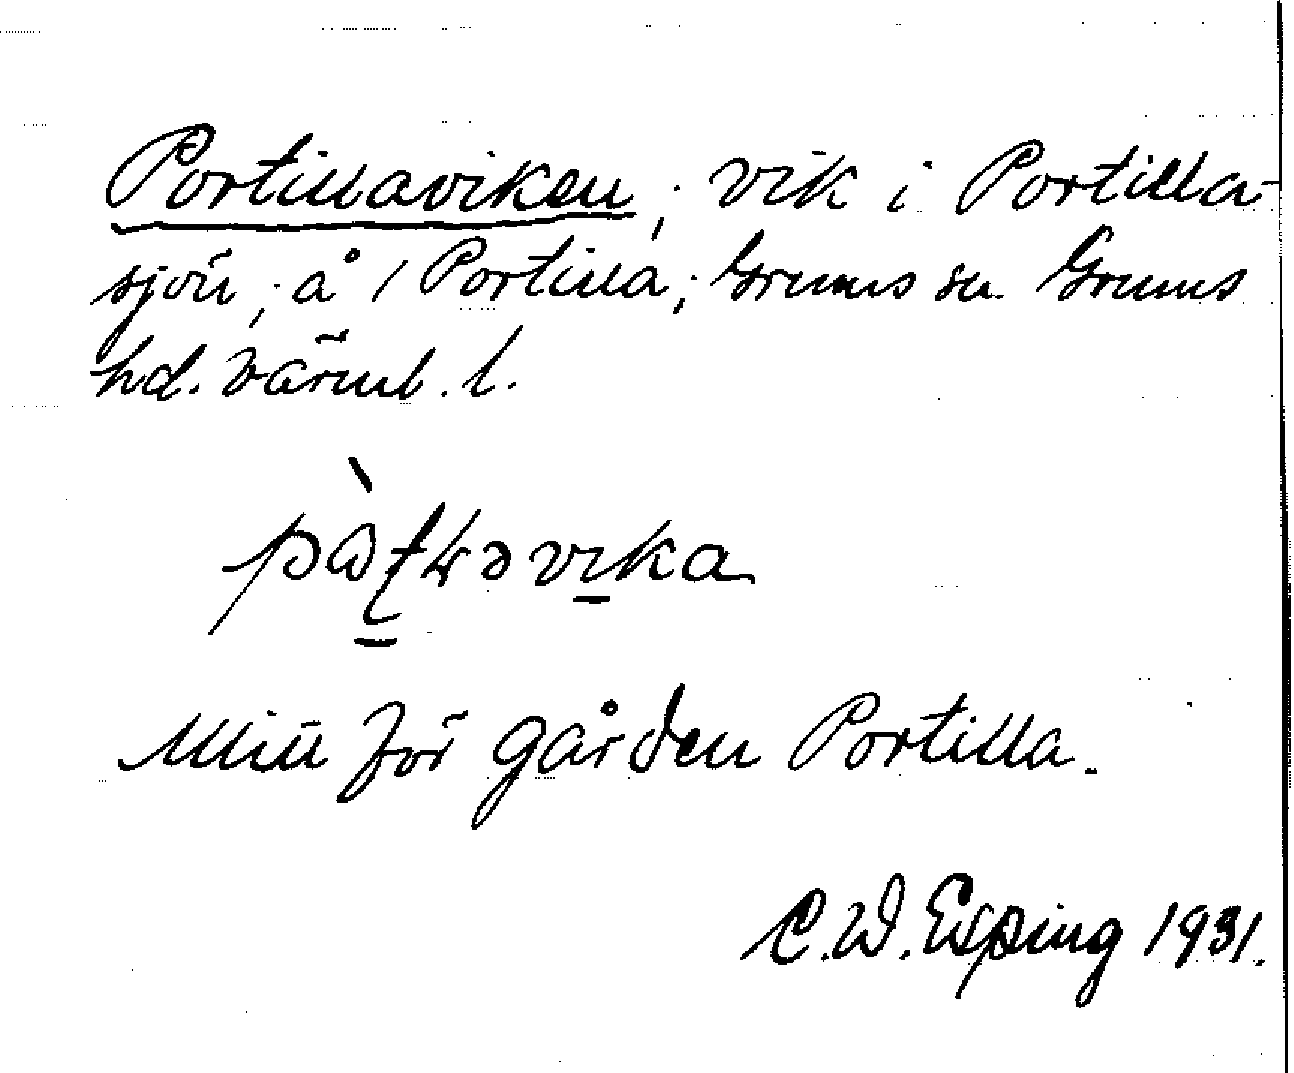 Portillaviken, vik i Portilla-
sjön, å 1 Portilla; Grums sn. Grums
hd. Värml. l.
Mitt för gården Portilla.
C.W. Esping 1931.